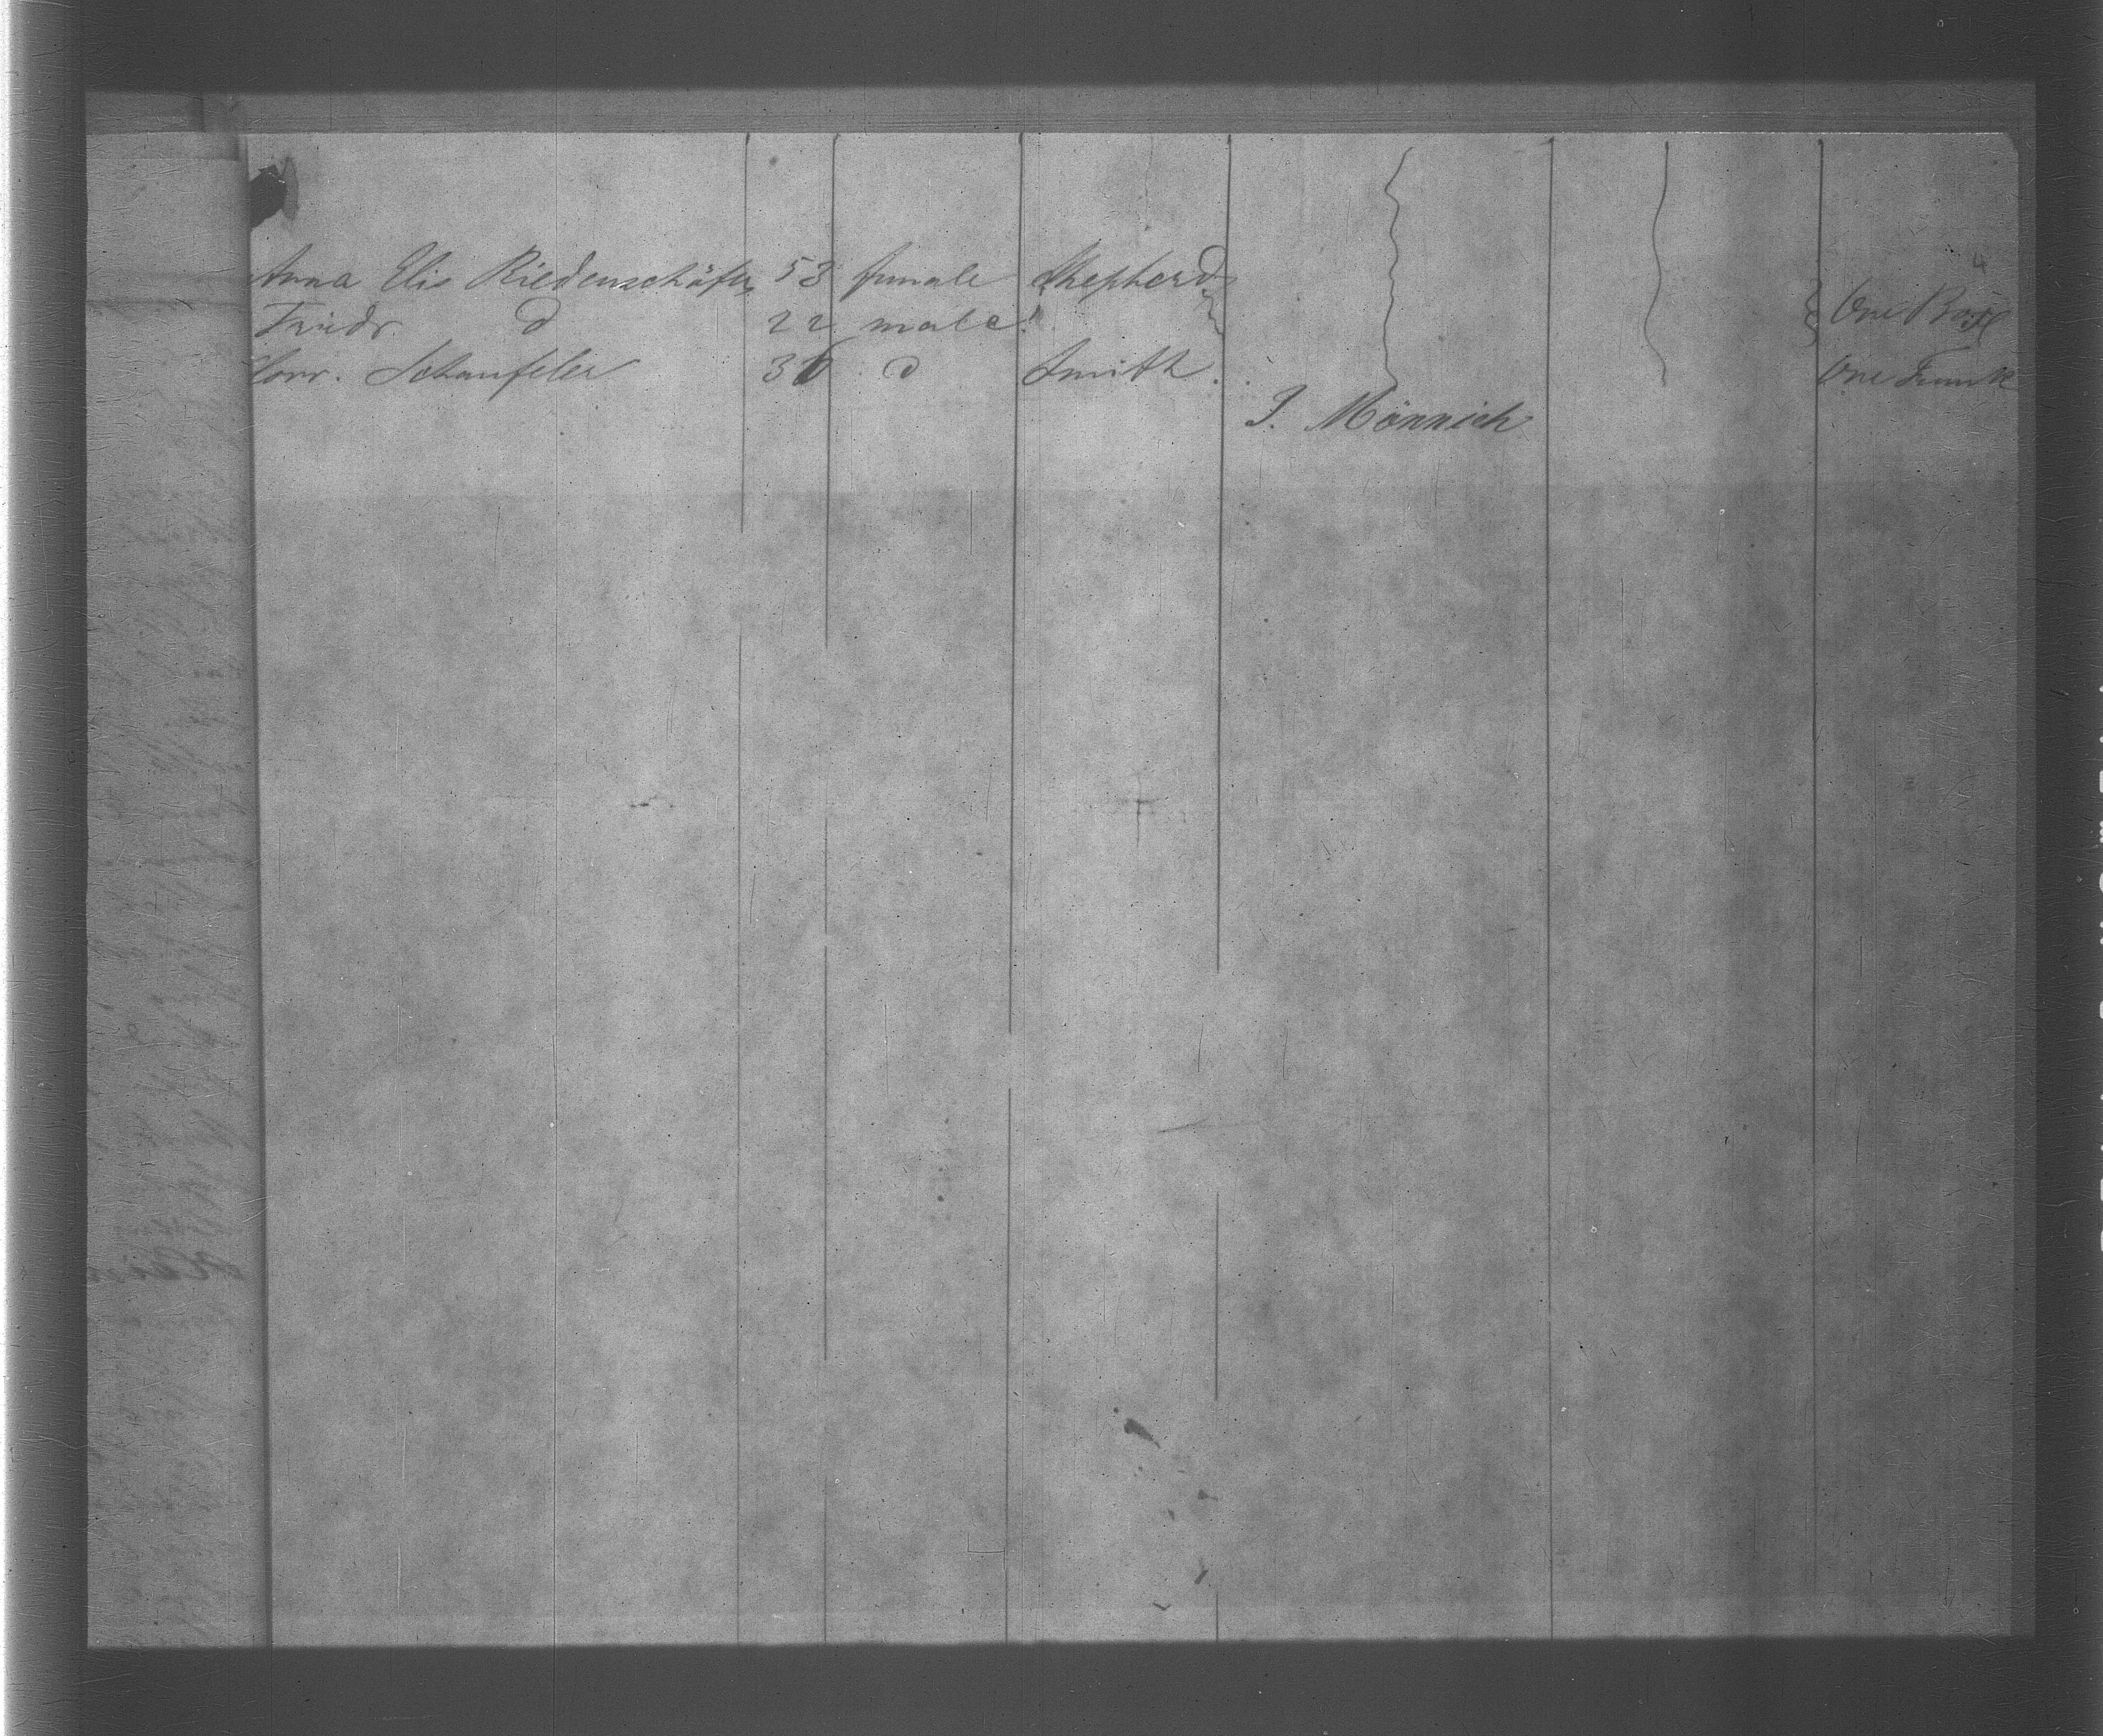 Anna Elis Riedenschäfer 53 female Shepherd
Friedr. d 22 male One Box
Conr. Schaufeler 36 d Smith One Trunk
J. Mönnich